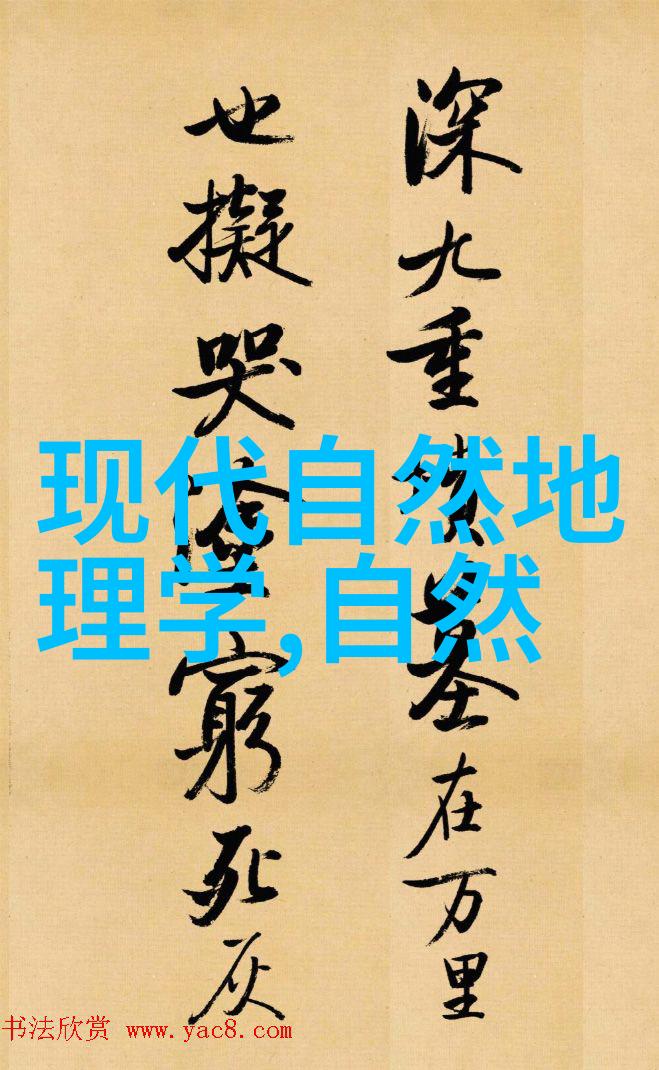 深九重墳墓在万里
也擬哭塗窮死灰
现代自然地
理学,自然
书法欣赏 www.yac8.com